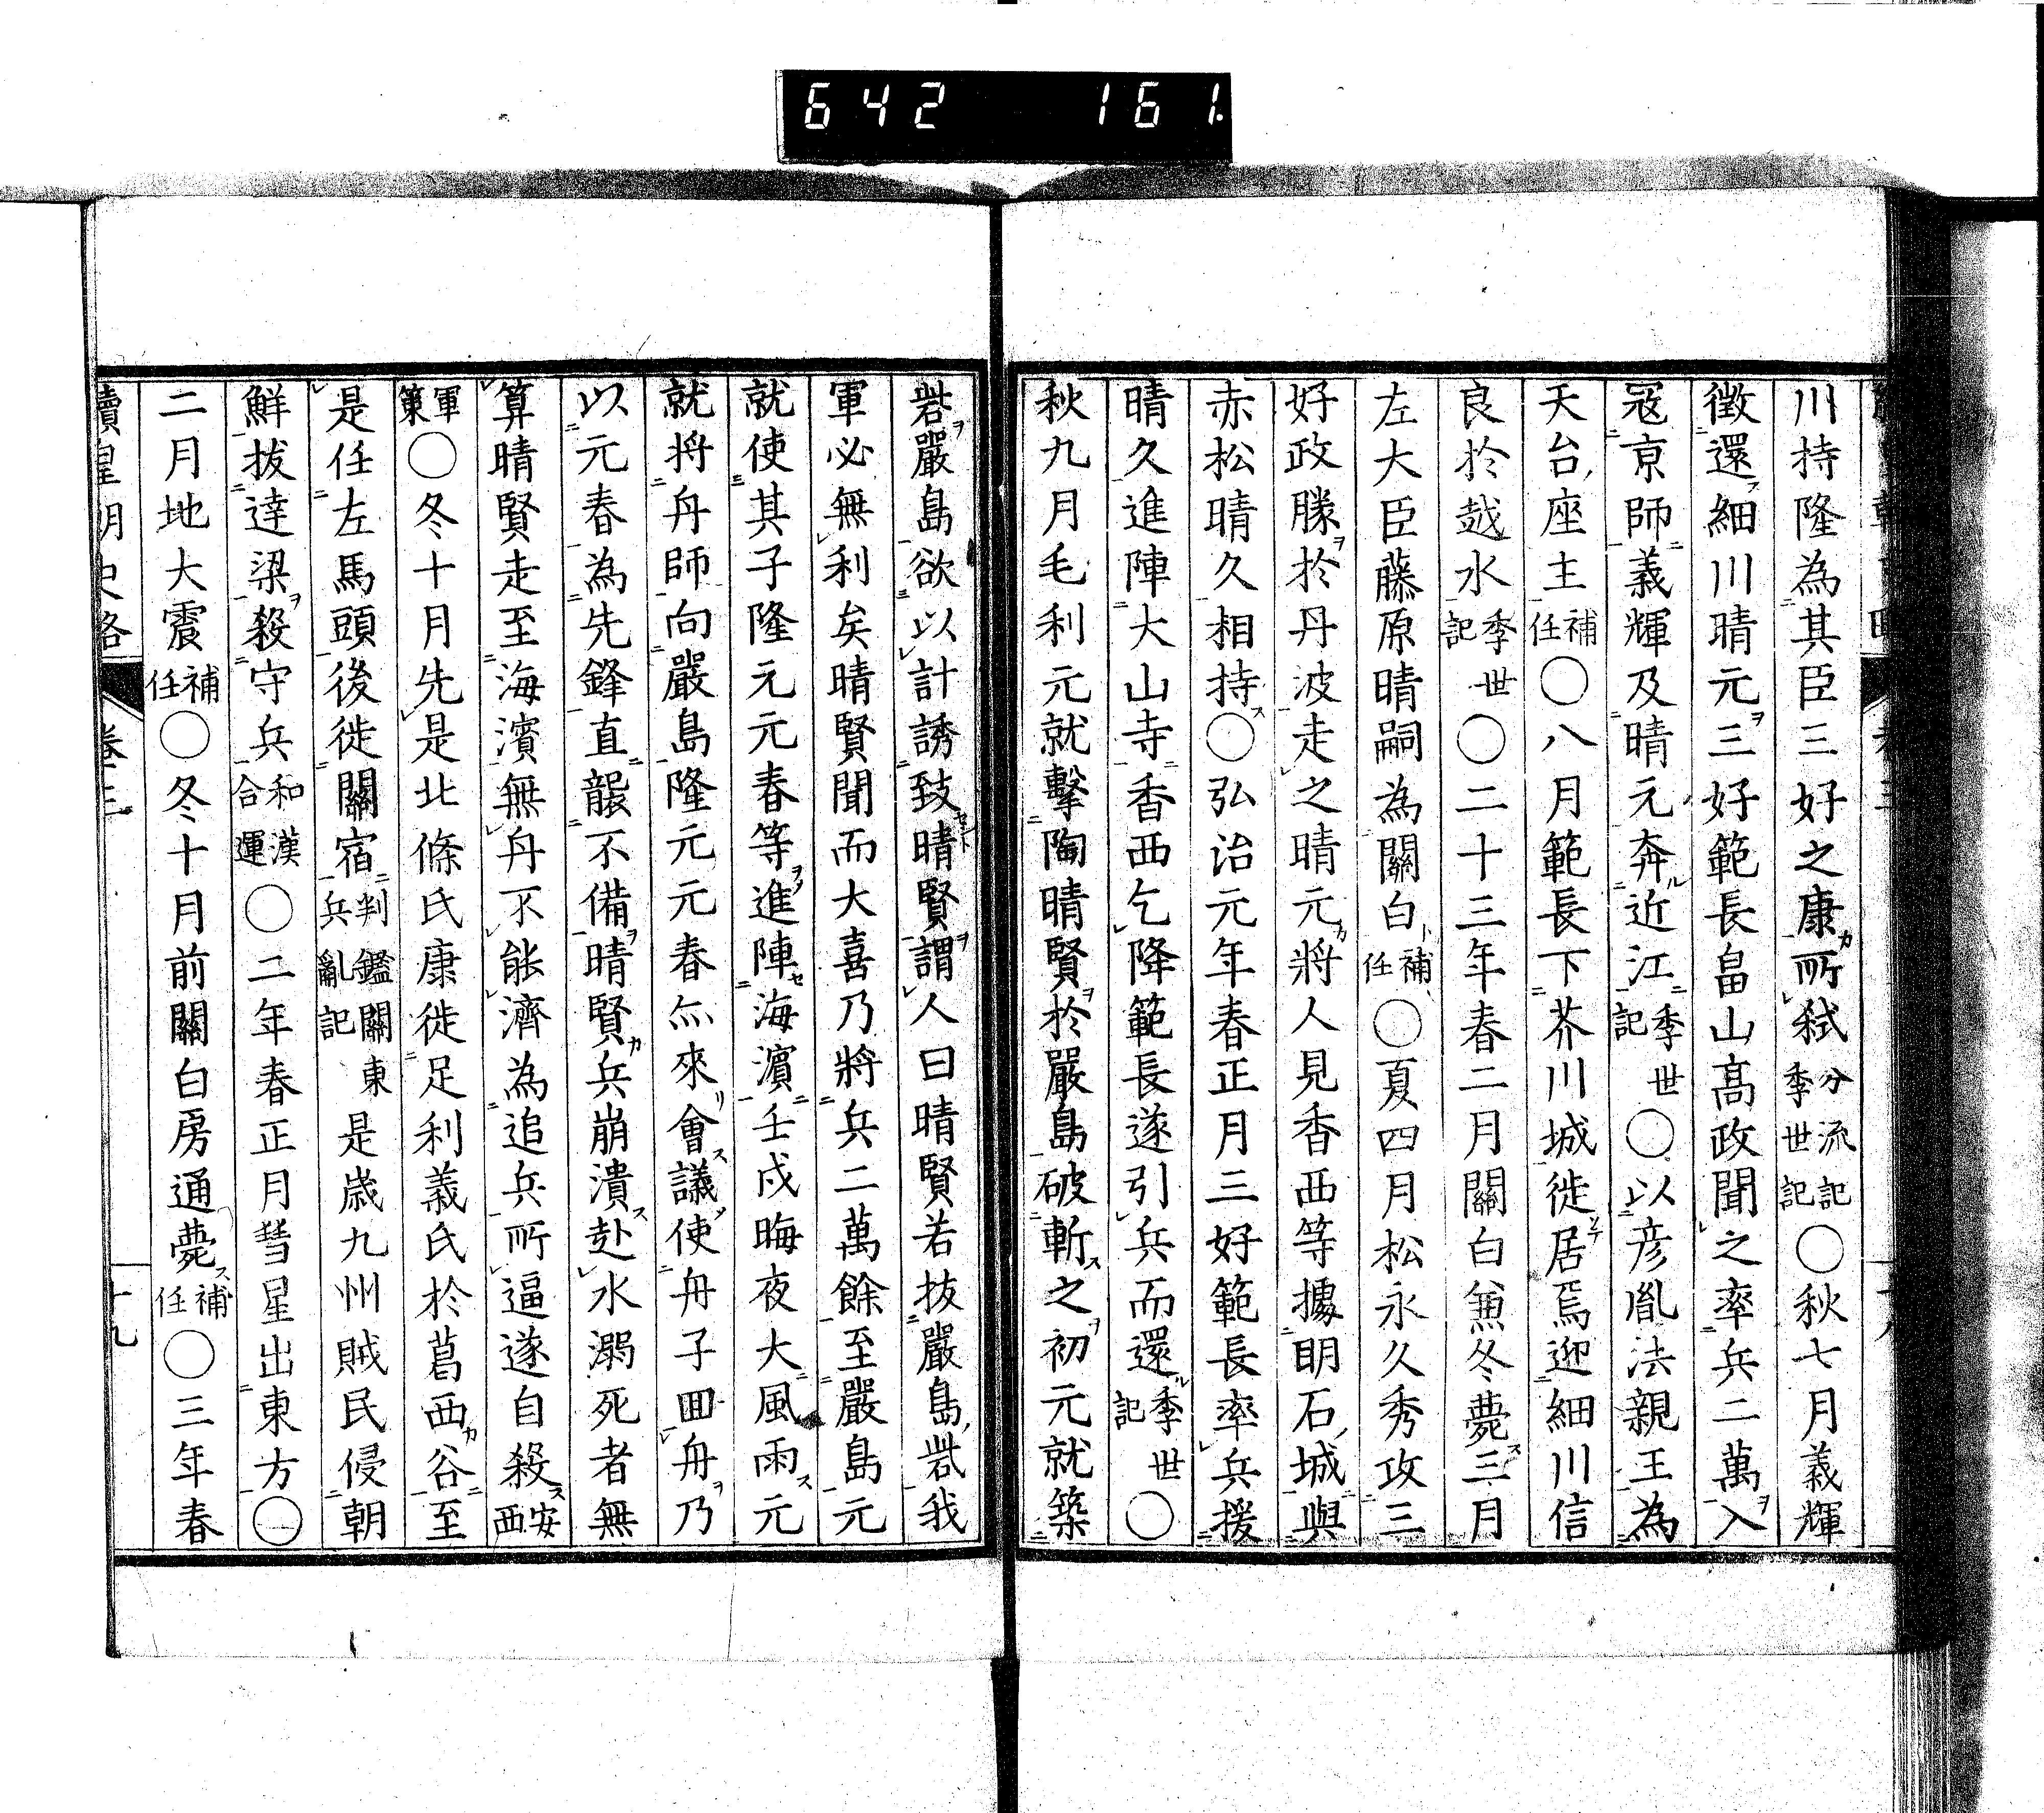 642 161
川持隆為其臣三好之康所弑分流記季世記〇秋七月義輝
徴還細川晴元三好範長畠山高政聞之率兵二萬入
冦京師義輝及晴元奔近江季世記〇以彦胤法親王為
天台座主補任〇八月範長下芥川城徙居焉迎細川信
良於越水季世記〇二十三年春二月關白兼冬薨三月
左大臣藤原晴嗣為關白補任〇夏四月松永久秀攻三
好政勝於丹波走之晴元將人見香西等據明石城與
赤松晴久相持〇弘治元年春正月三好範長率兵援
晴久進陣大山寺香西乞降範長遂引兵而還季世記〇
秋九月毛利元就擊陶晴賢於嚴島破斬之初元就築
砦嚴島欲以計誘致晴賢謂人曰晴賢若抜嚴島砦我
軍必無利矣晴賢聞而大喜乃將兵二萬餘至嚴島元
就使其子隆元元春等進陣海濵壬戌晦夜大風雨元
就將舟師向嚴島隆元元春亦來會議使舟子囬舟乃
以元春為先鋒直襲不備晴賢兵崩潰赴水溺死者無
算晴賢走至海濵無舟不能濟為追兵所逼遂自殺安西
軍策〇冬十月先是北條氏康徙足利義氏於葛西谷至
是任左馬頭後徙關宿判鑑關東兵亂記是歳九州賊民侵朝
鮮拔達梁殺守兵和漢合運〇二年春正月彗星出東方〇
二月地大震補任〇冬十月前關白房通薨補任〇三年春
續皇朝史略 卷三 十九